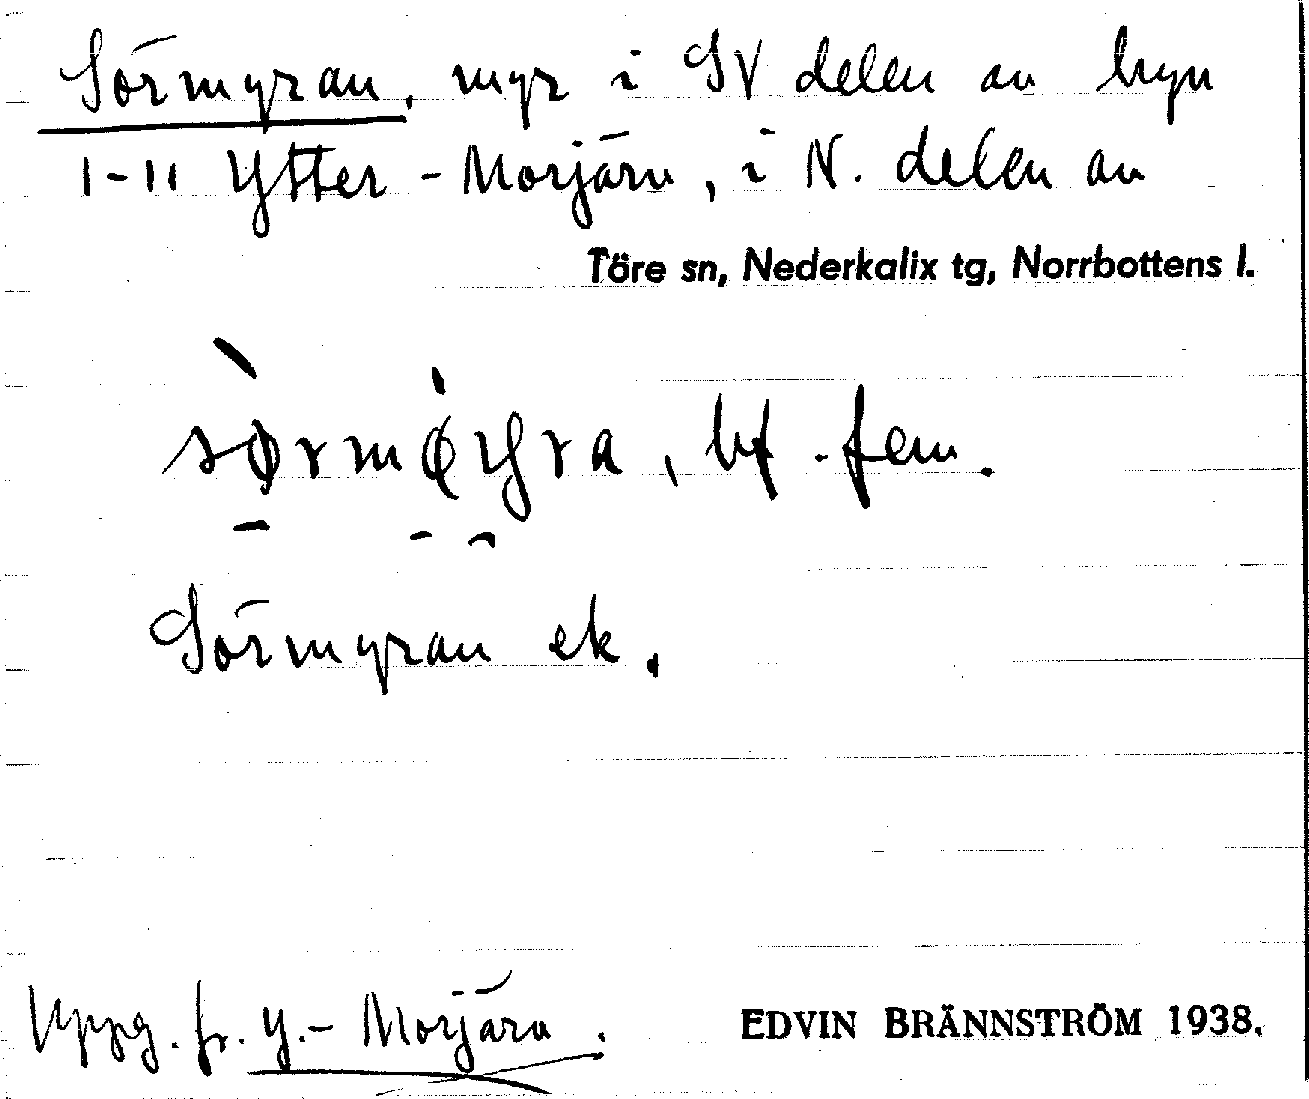 Sörmyran, myr i SV delen av byn
1-11 Ytter-Morjärv, i N. delen av
Töre sn, Nederkalix tg, Norrbottens l.
bf. fem.
Sörmyran ek.
Uppg. fr. Y.-Morjärv.
EDVIN BRÄNNSTRÖM 1938.